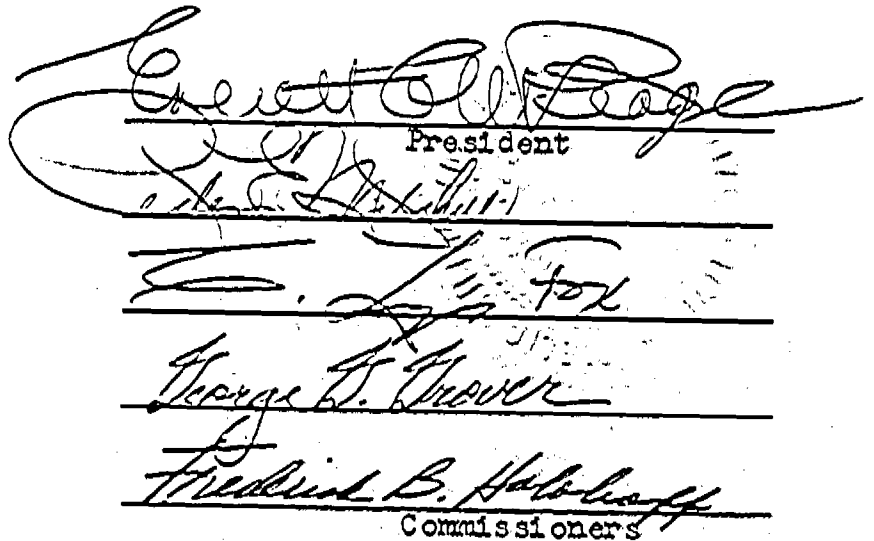 Everett C. McKeage
President
Fox
George G. Grover
Frederick B. Holoboff
Commissioners